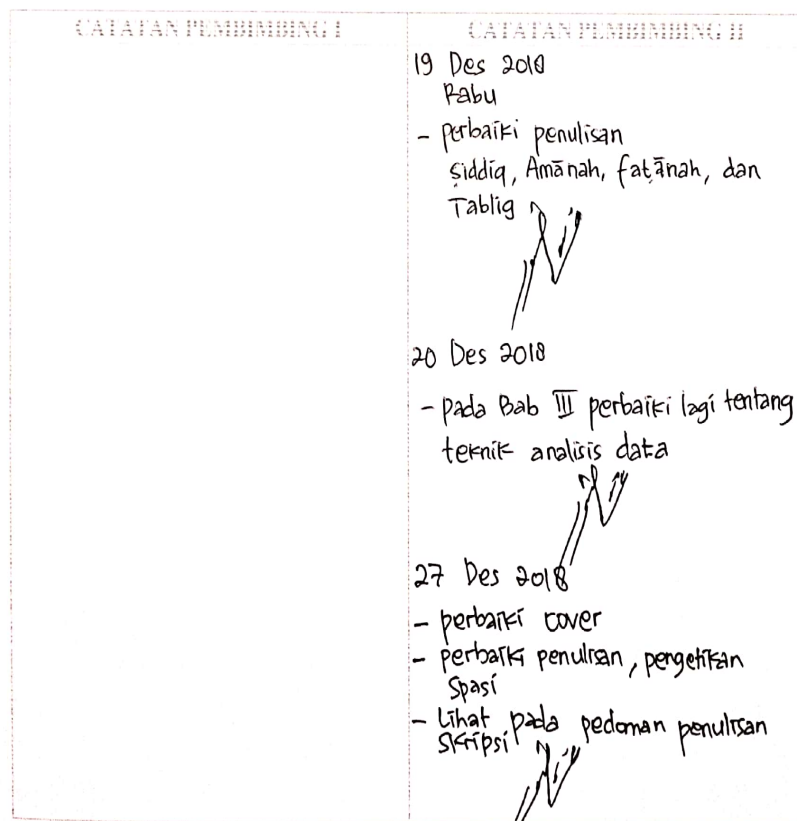 CATATAN PEMBIMBING I
CATATAN PEMBIMBING II
19 Des 2018
Rabu
- perbaiki penulisan
ṣiddiq, Amānah, faṭānah, dan
Tablig
20 Des 2018
- pada Bab III perbaiki lagi tentang
teknik analisis data
27 Des 2018
- perbaiki cover
- perbaiki penulisan, pengetikan
spasi
- Lihat pada pedoman penulisan
skripsi